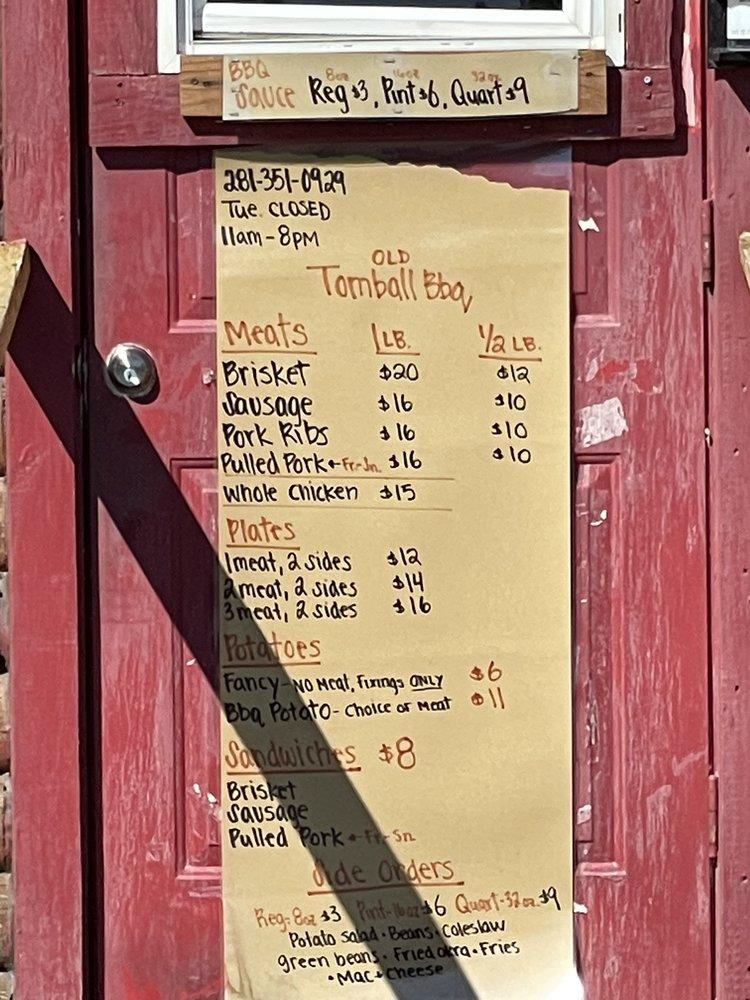 BBQ 8oz 16oz 32oz
Sauce Reg $3, Pint $6, Quart $9
281-351-0929
Tue. CLOSED
11am-8PM
OLD
Tomball Bbq
Meats 1 LB. 1/2 LB.
Brisket $20 $12
Sausage $16 $10
Pork Ribs $16 $10
Pulled Pork ← Fr.-Sn. $16 $10
Whole Chicken $15
Plates
1 meat, 2 sides $12
2 meat, 2 sides $14
3 meat, 2 sides $16
Potatoes
Fancy - No Meat, Fixings ONLY $6
Bbq Potato - Choice of Meat $11
Sandwiches $8
Brisket
Sausage
Pulled Pork ← Fr.-Sn.
Side Orders
Reg-8oz $3 Pint-16oz $6 Quart-32oz. $9
Potato Salad • Beans • Coleslaw
green beans • Fried okra • Fries
• Mac + Cheese